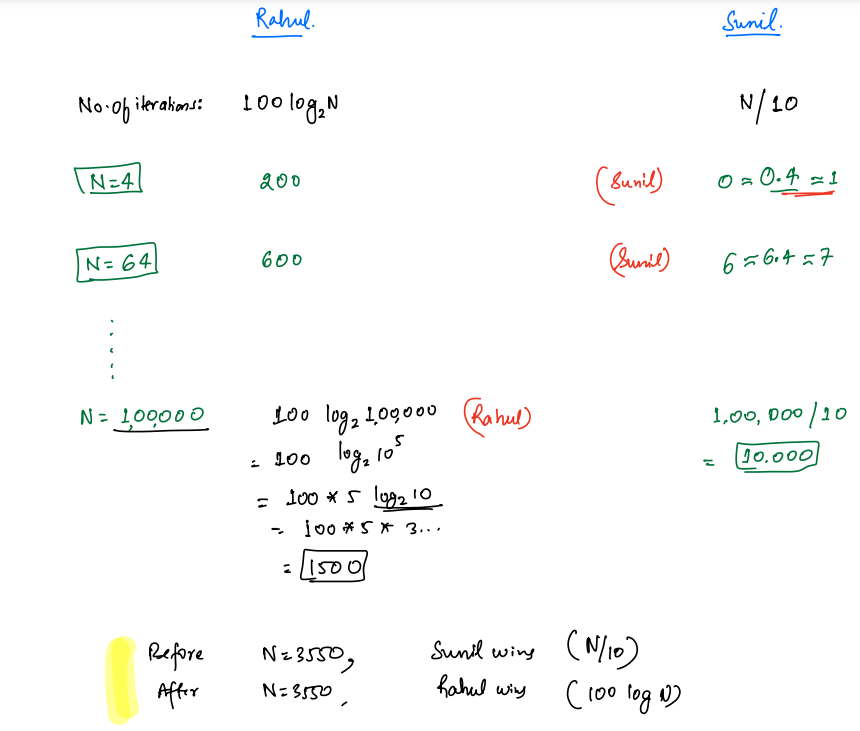 Rahul. Sunil.
No. of iterations: 100 log₂N N/10
N=4 200 (Sunil) 0 ≈ 0.4 ≈ 1
N= 64 600 (Sunil) 6 ≈ 6.4 ≈ 7
N= 1,00,000 100 log₂ 1,00,000 (Rahul) 1,00,000/10
= 100 log₂ 10⁵ = 10,000
= 100 * 5 log₂ 10
= 100 * 5 * 3...
= 1500
Before N=3550, Sunil wins (N/10)
After N=3550, Rahul wins (100 log N)